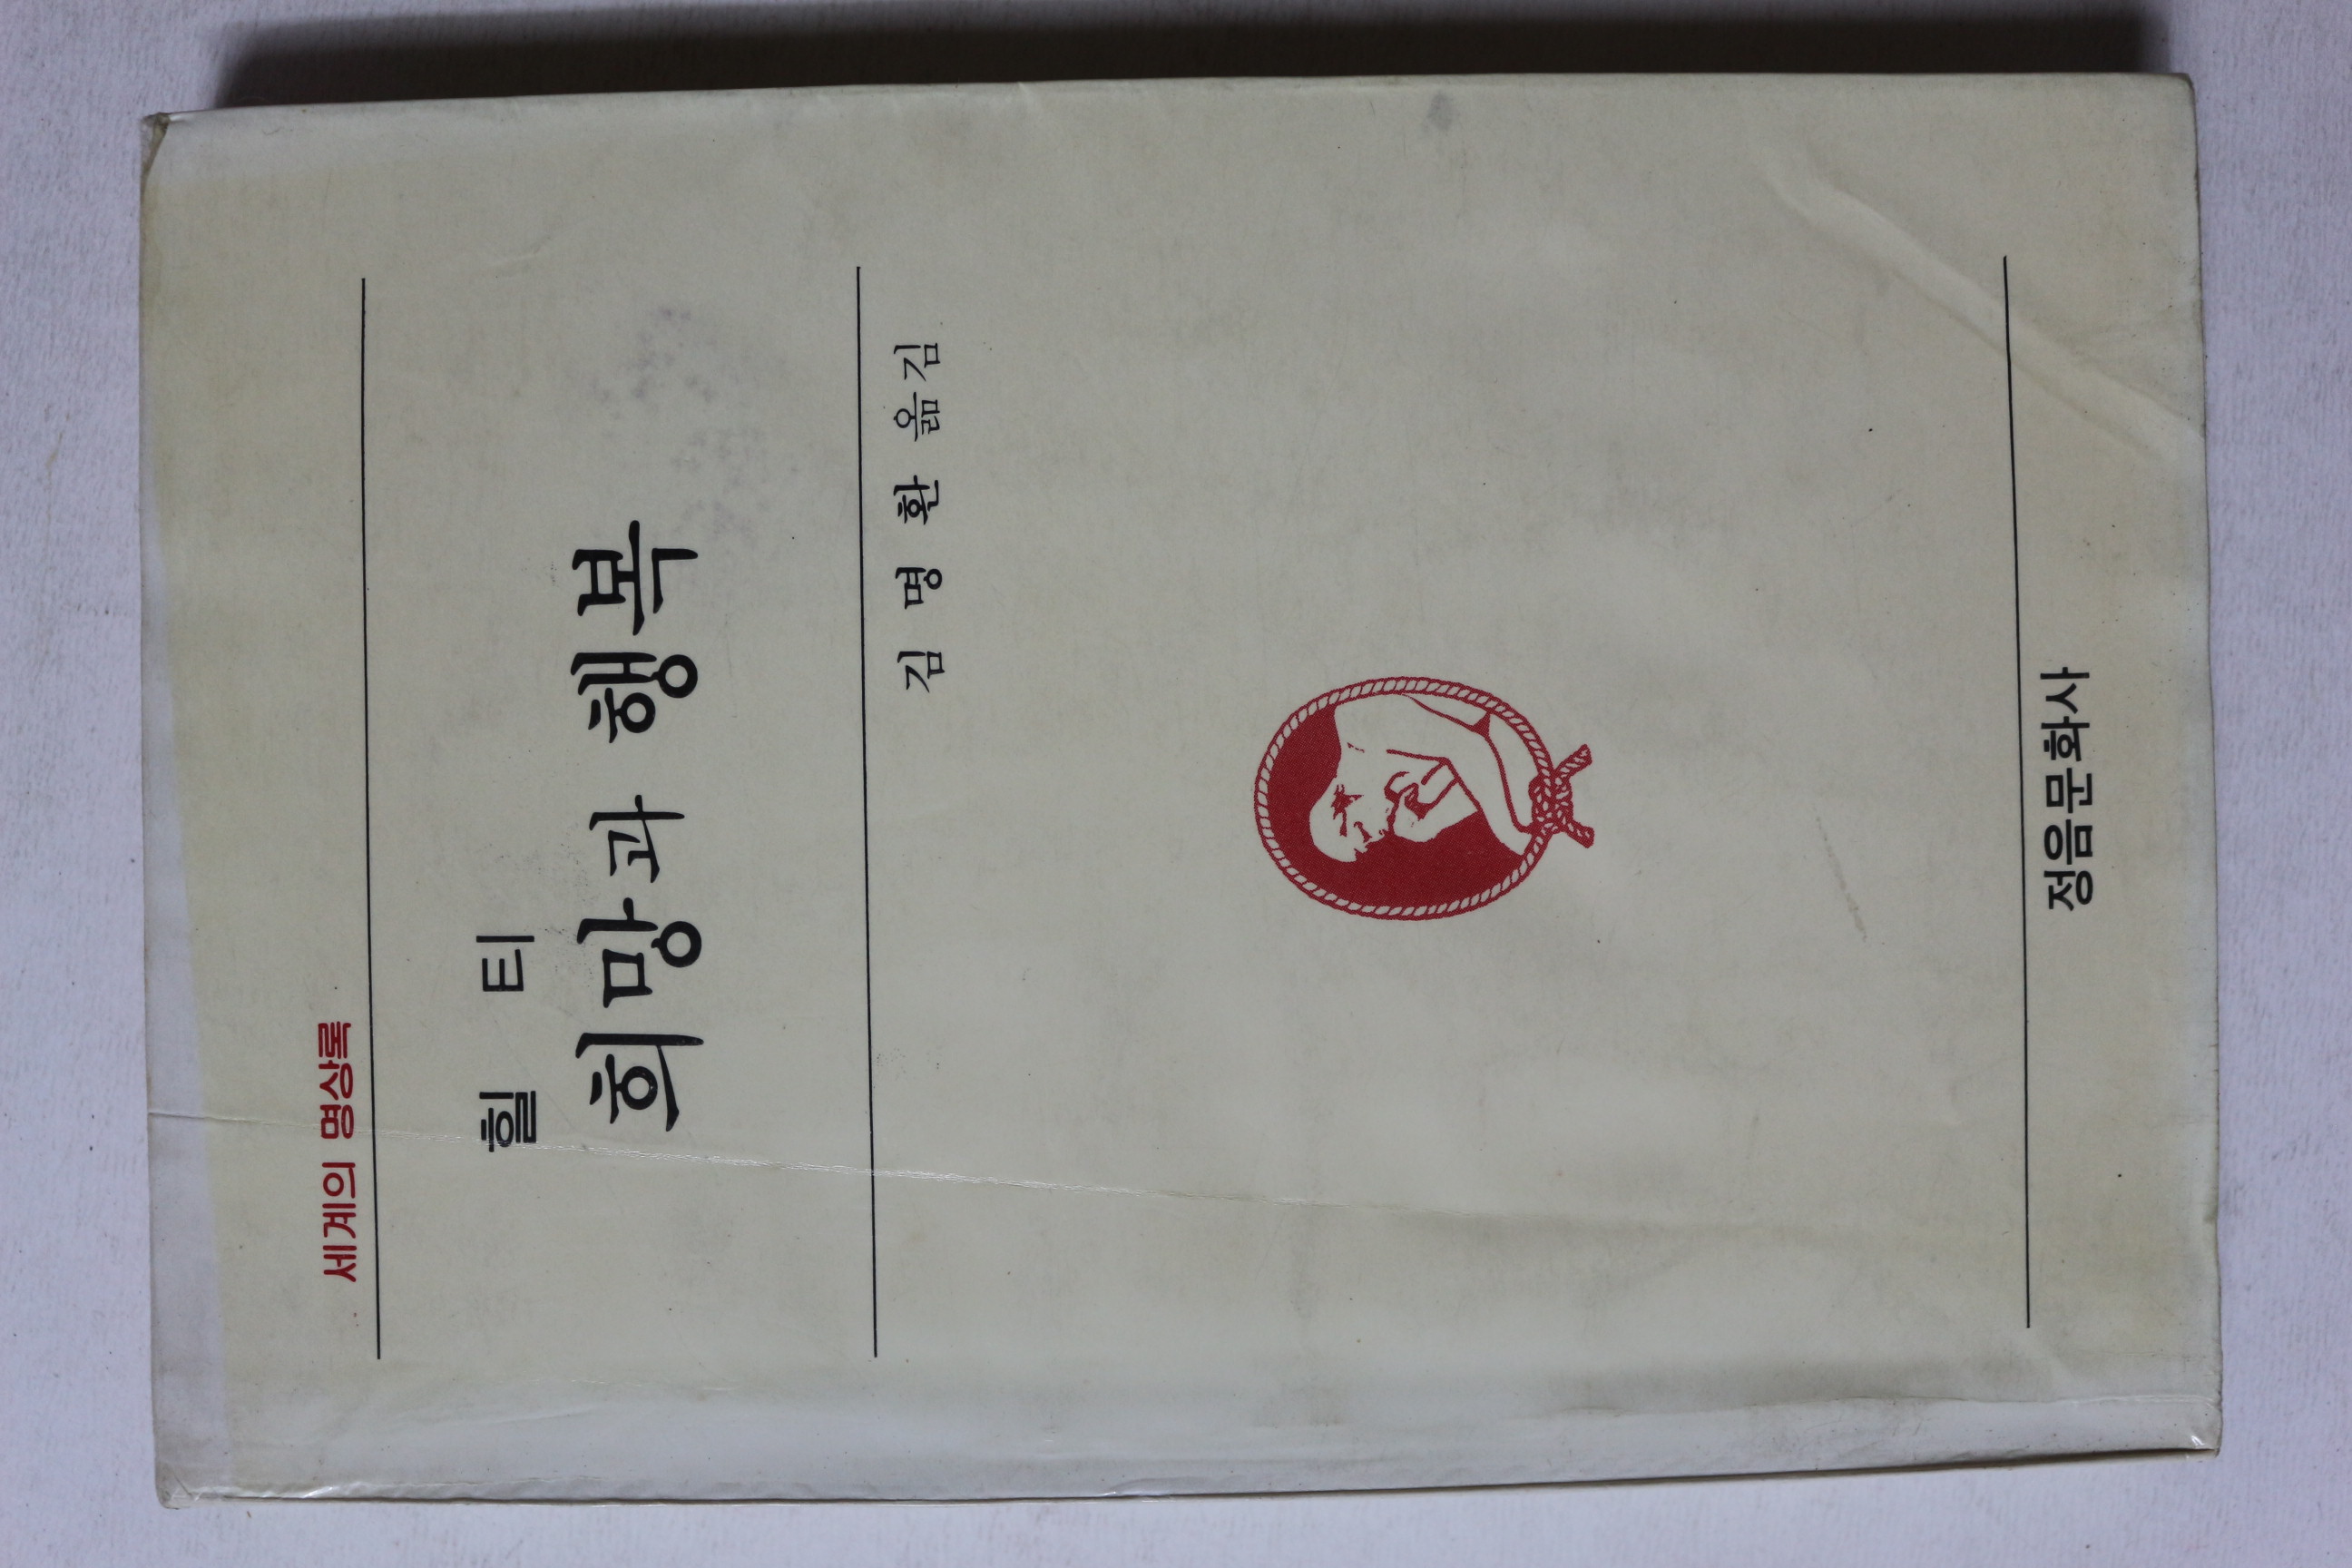 세계의 명상록
힐 티
희망과 행복
김 명 환 옮김
정음문화사